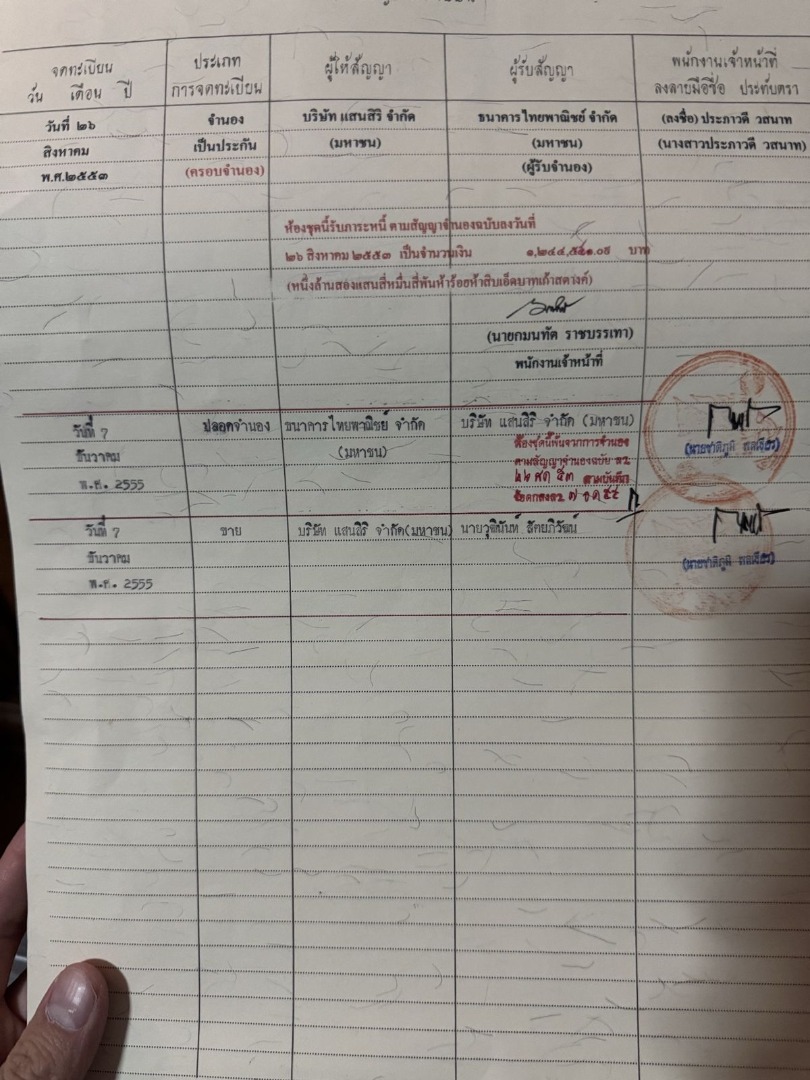 จดทะเบียน
วัน เดือน ปี
ประเภท
การจดทะเบียน
ผู้ให้สัญญา
ผู้รับสัญญา
พนักงานเจ้าหน้าที่
ลงลายมือชื่อ ประทับตรา
วันที่ ๒๖
สิงหาคม
พ.ศ.๒๕๕๓
จำนอง
เป็นประกัน
(ครอบจำนอง)
บริษัท แสนสิริ จำกัด
(มหาชน)
ธนาคารไทยพาณิชย์ จำกัด
(มหาชน)
(ผู้รับจำนอง)
(ลงชื่อ) ประภาวดี วสนาท
(นางสาวประภาวดี วสนาท)
ห้องชุดนี้รับภาระหนี้ ตามสัญญาจำนองฉบับลงวันที่
๒๖ สิงหาคม ๒๕๕๓ เป็นจำนวนเงิน ๑,๒๔๔,๕๕๑.๐๙ บาท
(หนึ่งล้านสองแสนสี่หมื่นสี่พันห้าร้อยห้าสิบเอ็ดบาทเก้าสตางค์)
(นายกมนทัต ราชบรรเทา)
พนักงานเจ้าหน้าที่
วันที่ 7
ธันวาคม
พ.ศ. 2555
ปลอดจำนอง
ธนาคารไทยพาณิชย์ จำกัด
(มหาชน)
บริษัท แสนสิริ จำกัด (มหาชน)
ห้องชุดนี้พ้นจากการจำนอง
ตามสัญญาจำนองฉบับ ลว.
ตามบันทึก
(นายชาติภูมิ
วันที่ 7
ธันวาคม
พ.ศ. 2555
ขาย
บริษัท แสนสิริ จำกัด(มหาชน)
นายวุฒินันท์
(นายชาติภูมิ